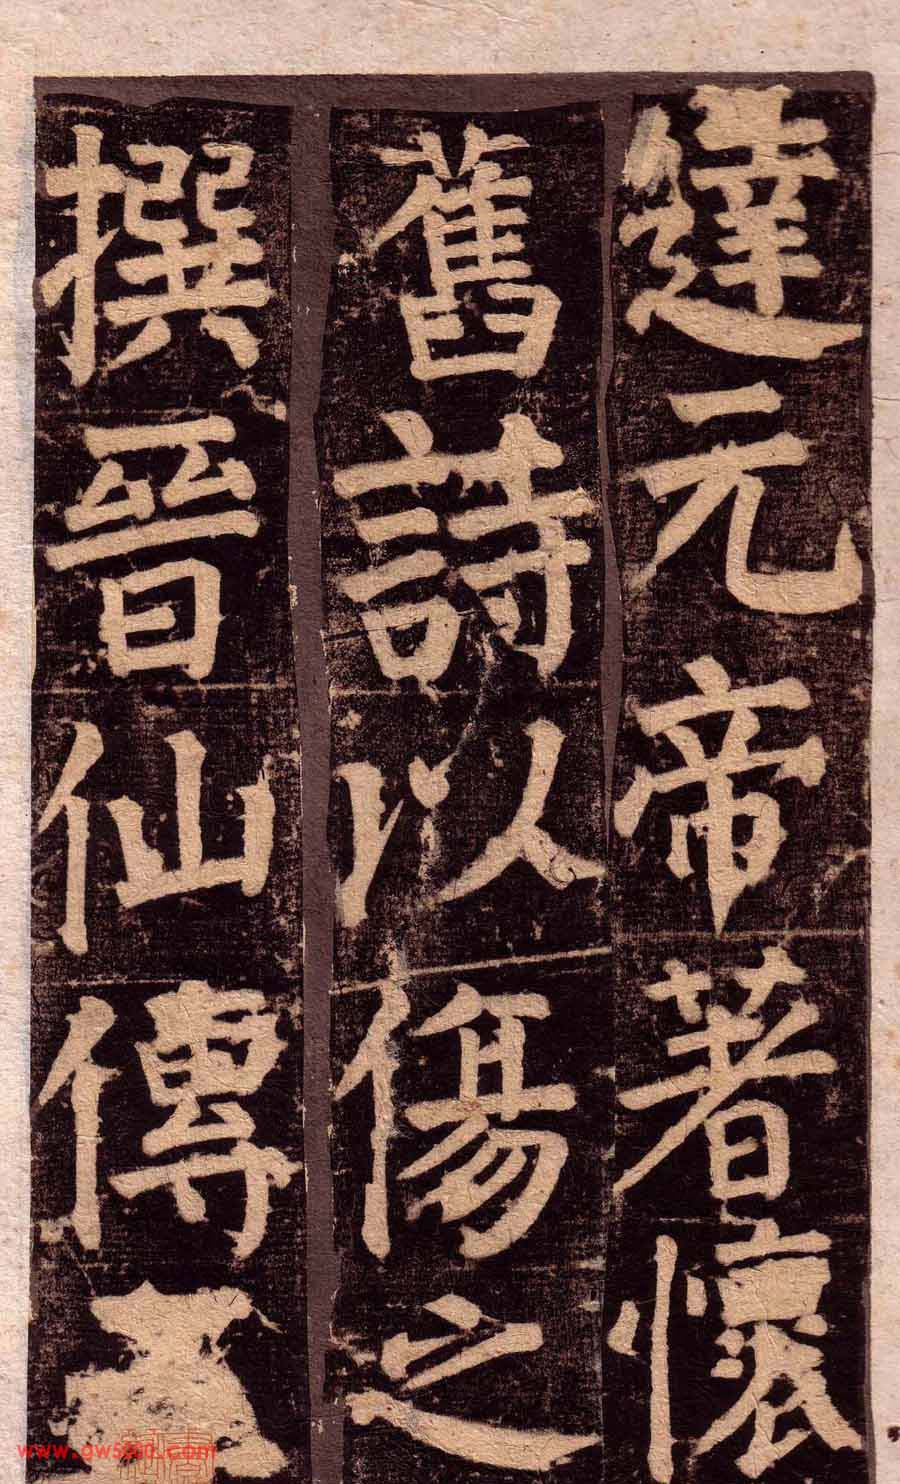 達元帝著懷
舊詩以傷之
撰晉仙傳
www.gw5000.com